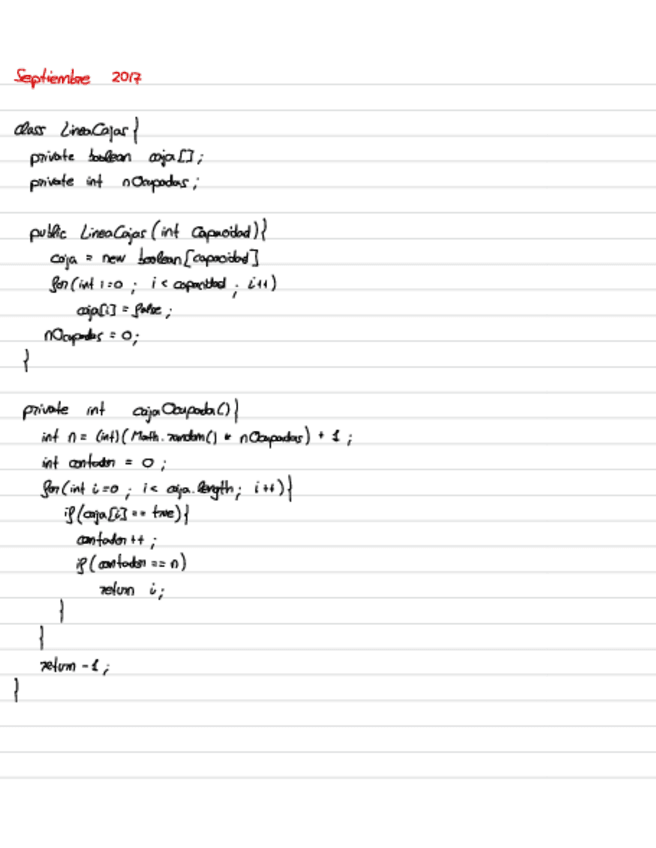 Septiembre 2017
class LineaCajas{
private boolean caja[];
private int nOcupadas;
public LineaCajas(int Capacidad){
caja = new boolean[capacidad]
for(int i=0; i<capacidad; i++)
caja[i] = false;
nOcupadas = 0;
}
private int cajaOcupada(){
int n = (int)(Math.random() * nOcupadas) + 1;
int contador = 0;
for(int i=0; i< caja.length; i++){
if(caja[i] == true){
contador++;
if(contador == n)
return i;
}
}
return -1;
}